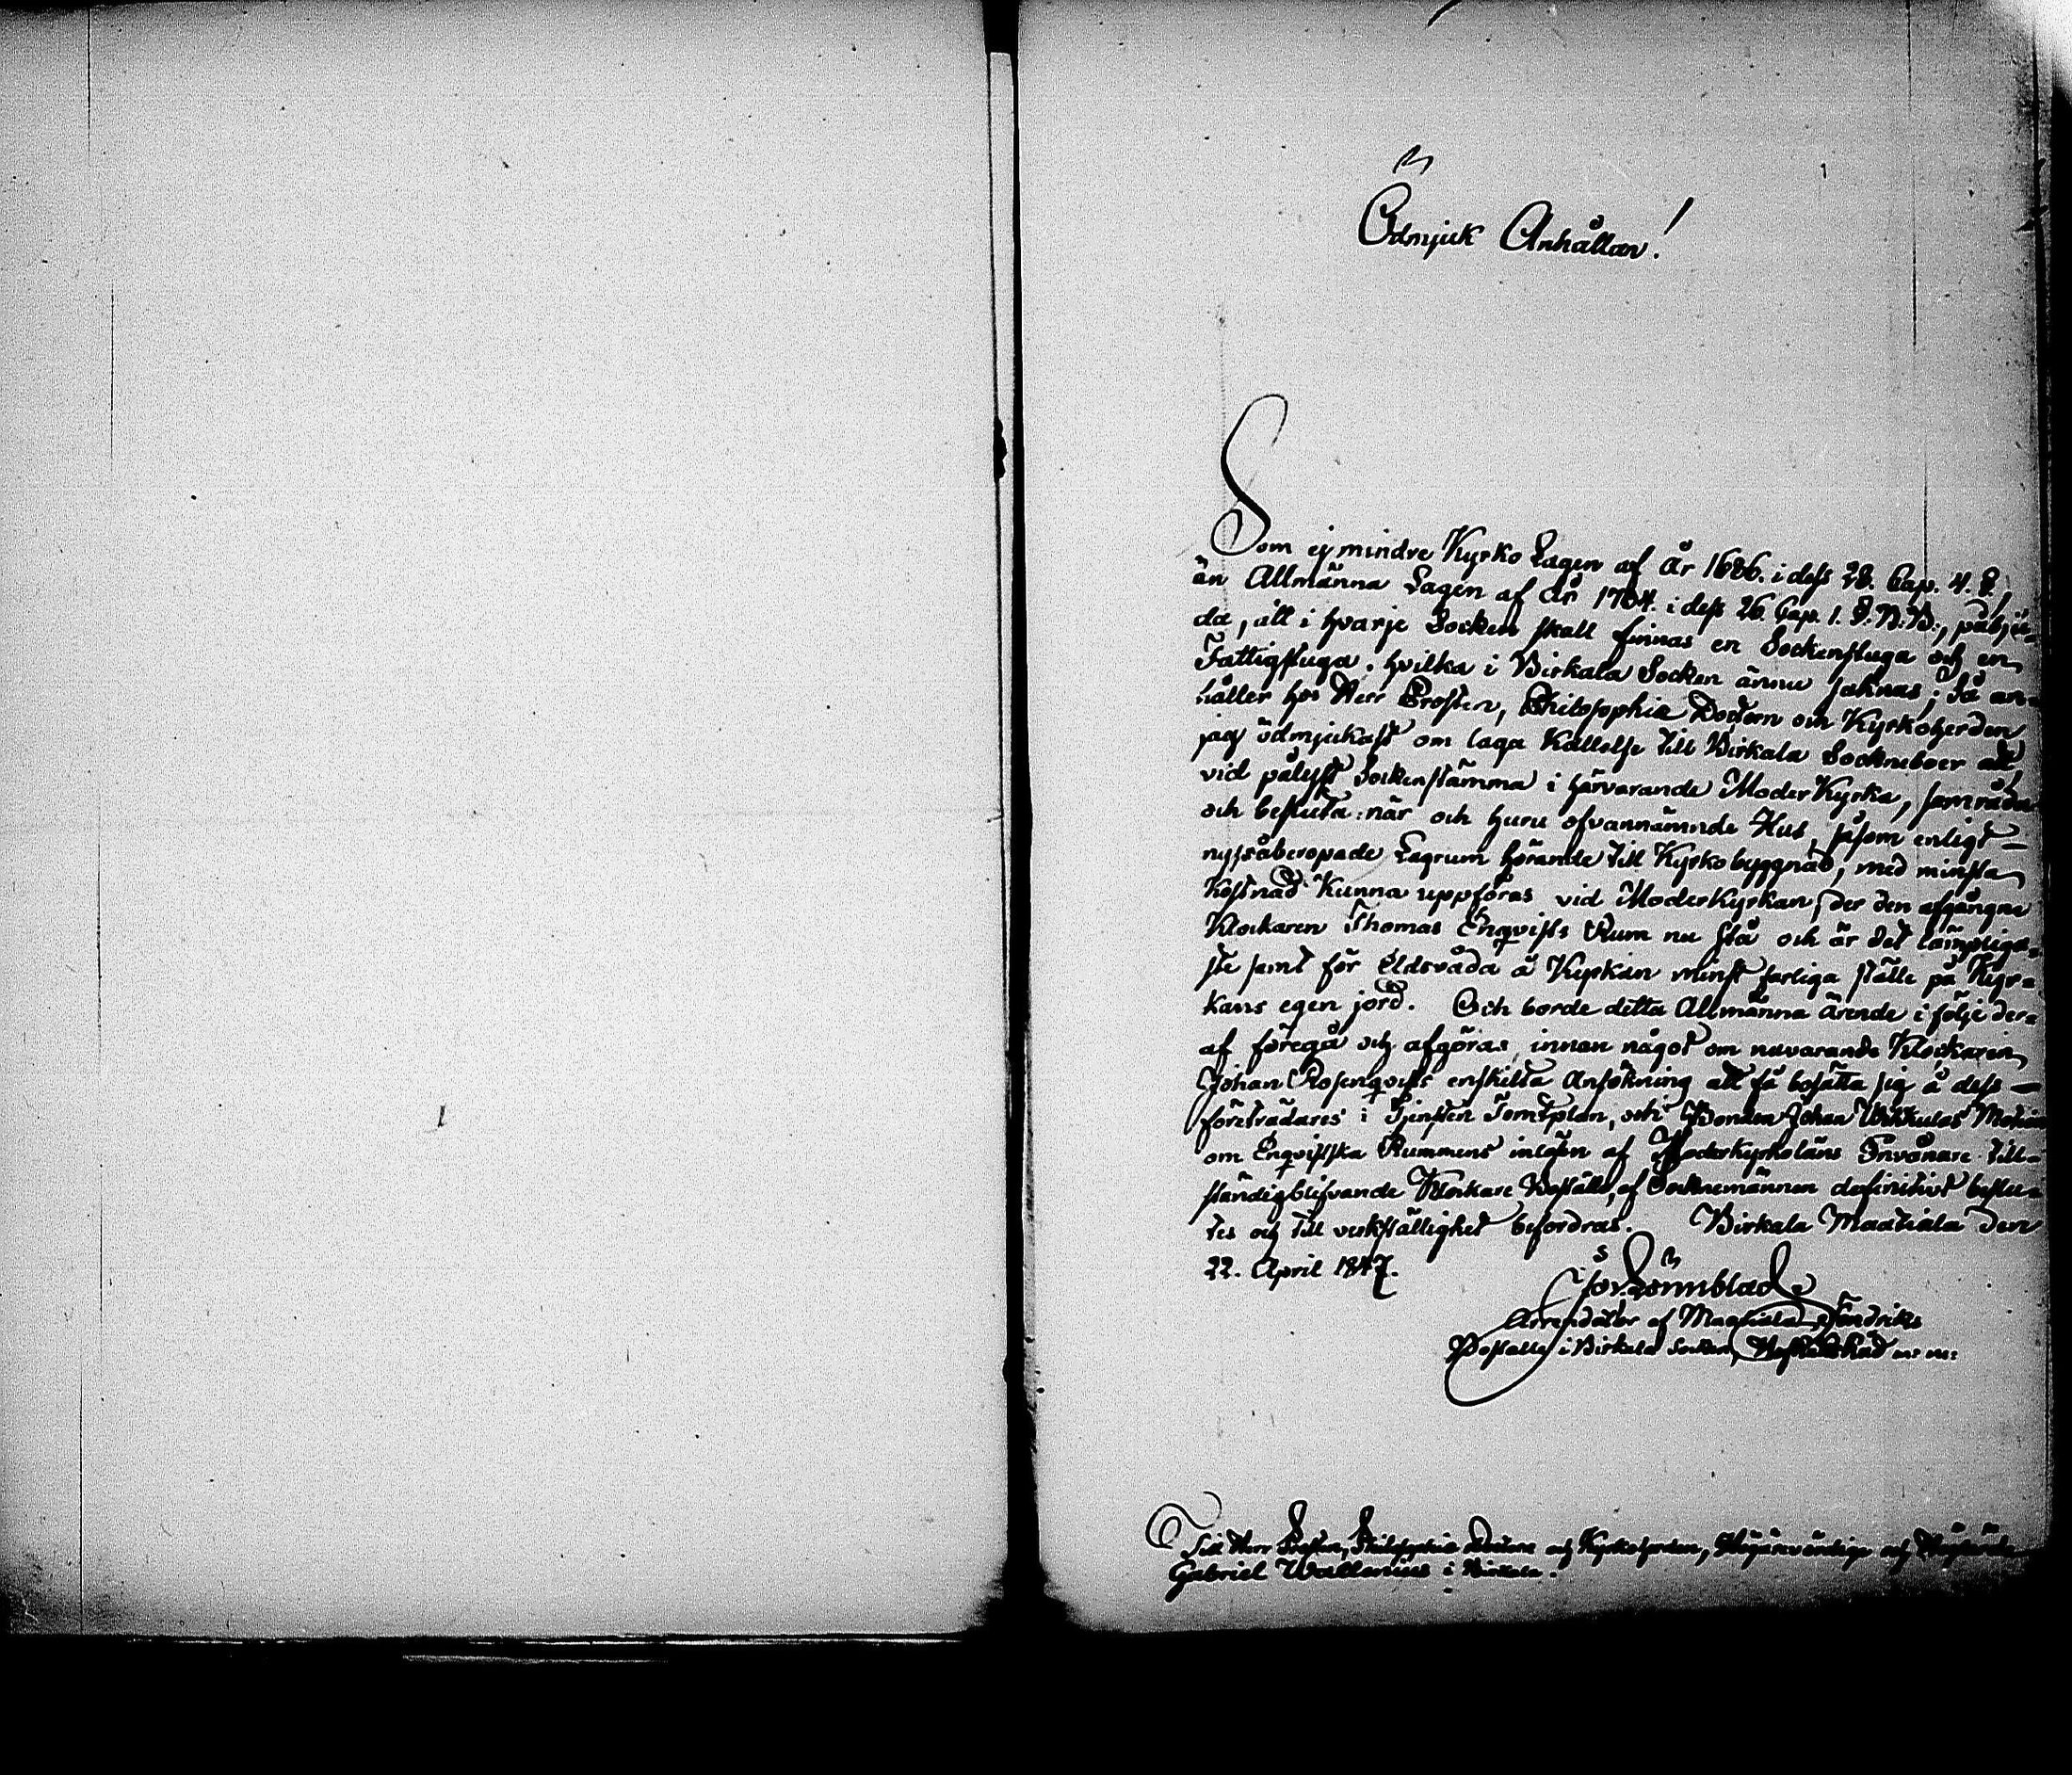 Ödmjuk Anhållan!
Som ej mindre Kyrko Lagen af År 1686. i dess 28. Cap. 4. §.
än Allmänna Lagen af År 1734. i dess 26. Cap. 1. §. B: B:, påbju-
da, att i hvarje Socken skall finnas en Sockenstuga och en
Fattigstuga, hvilka i Birkala Socken ännu saknas; Så an-
håller hos Herr Prosten, Philosophiæ Doctorn och Kyrkoherden
jag ödmjukast om laga Kallelse till Birkala Sockneboer att
vid pålyst Sockenstämma i härvarande ModerKyrka, samråda
och besluta: när och huru ofvannämnde Hus, såsom enligt
nyssåberopade Lagrum hörande till Kyrkobyggnad, med minsta
Kostnad kunna uppföras vid ModerKyrkan, der den afgångne
Klockaren Thomas Enqvists Rum nu stå och är det lämpliga-
ste samt för Eldsvåda å Kyrkan minst farliga ställe på Kyr-
kans egen jord. Och borde detta Allmänna ärende i följe der-
af föregå och afgöras, innan något om nuvarande Klockaren
Johan Rosenqvists enskilta Ansökning att få bosätta sig å dess
företrädares i Tjensten Tomtplan, och Bonden Johan Ukkulas
om Enqvistska Rummens inlösen af Moderkyrkoläns Invånare till
ständigblifvande Klockare Boställe, af Socknemännen definitivt beslu-
tes och till verkställighet befordras. Birkala Maatiala den
22. April 1847.
Is. Lönnblad
Arrendator af Maatiala Fendriks
Boställe i Birkala Socken, m: m:
Till Herr Prosten, Philosophiæ Doctorn och Kyrkoherden, Högärevördige och
Gabriel Wallenius i Birkala.